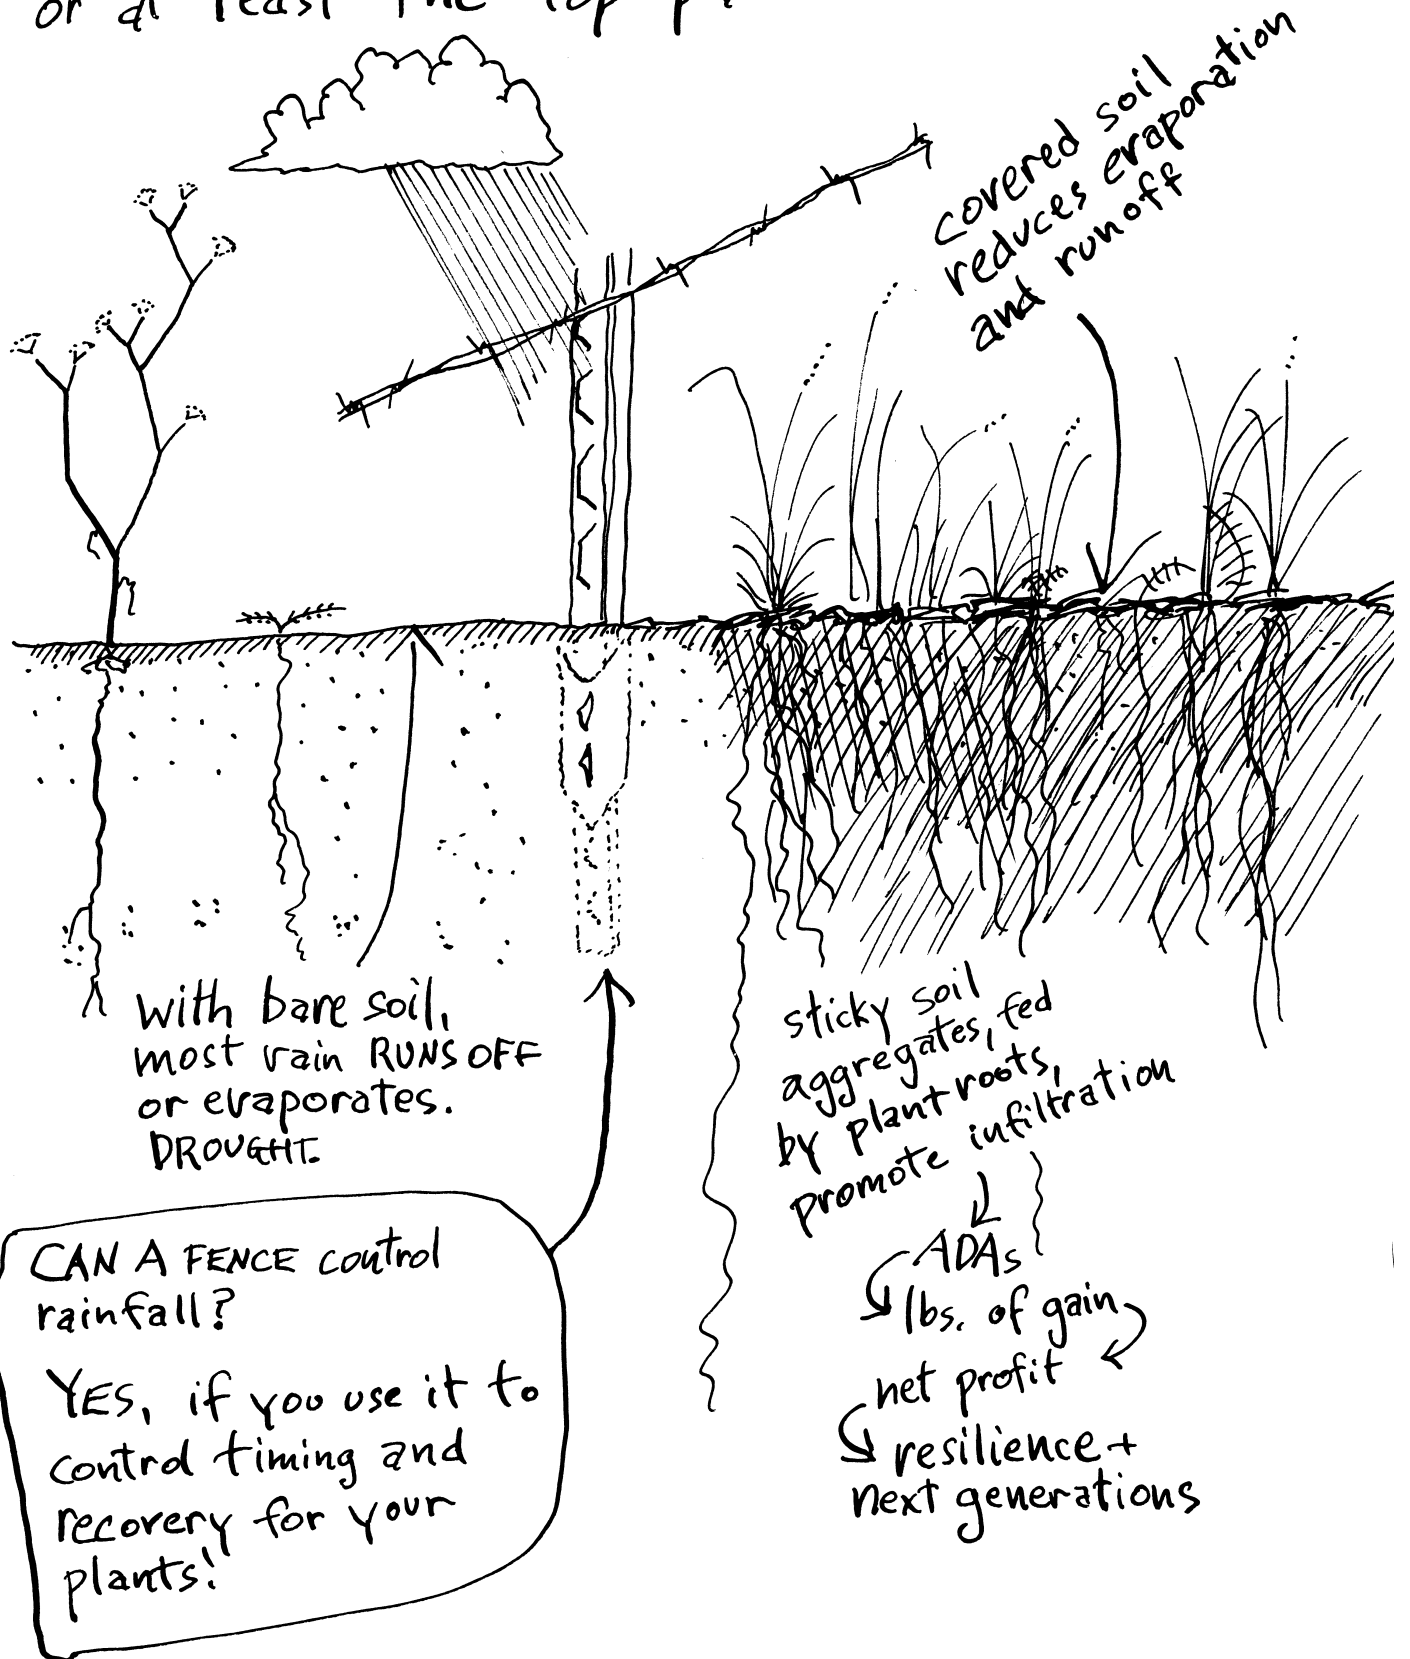 or at least the top p
covered soil
reduces evaporation
and runoff
with bare soil,
most rain RUNS OFF
or evaporates.
DROUGHT.
sticky soil
aggregates, fed
by plant roots,
promote infiltration
ADAs
lbs. of gain
net profit
resilience +
next generations
CAN A FENCE control
rainfall?
YES, if you use it to
control timing and
recovery for your
plants!